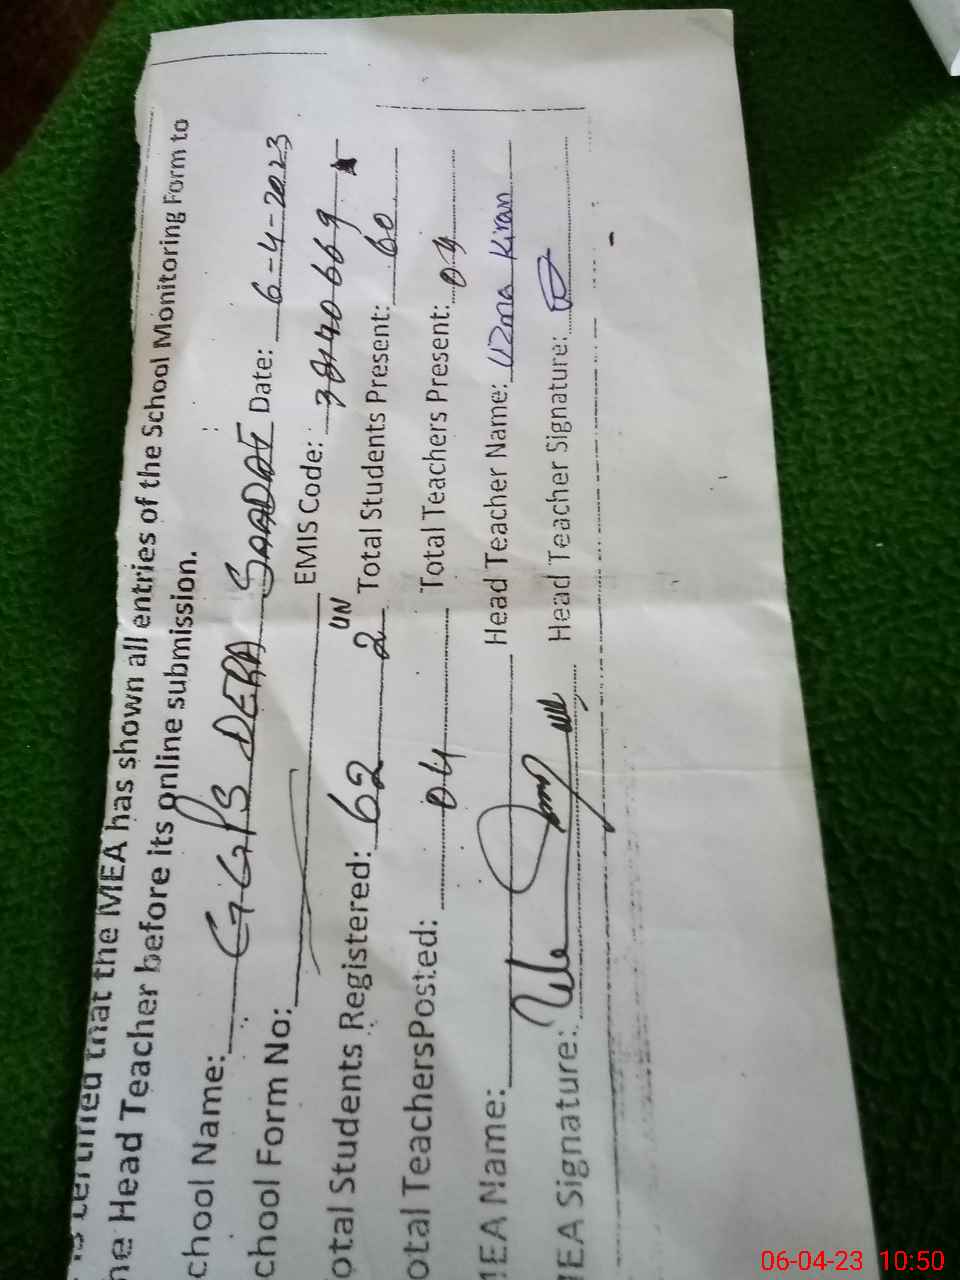 is certified that the MEA has shown all entries of the School Monitoring Form to
he Head Teacher before its online submission.
chool Name: GGPS DERA SAADAT Date: 6-4-2023
chool Form No: EMIS Code:
otal Students Registered: 62 2 UN Total Students Present: 60
otal Teachers Posted: 04 Total Teachers Present: 04
MEA Name: Head Teacher Name: Uzma Kiran
MEA Signature: Head Teacher Signature:
06-04-23 10:50